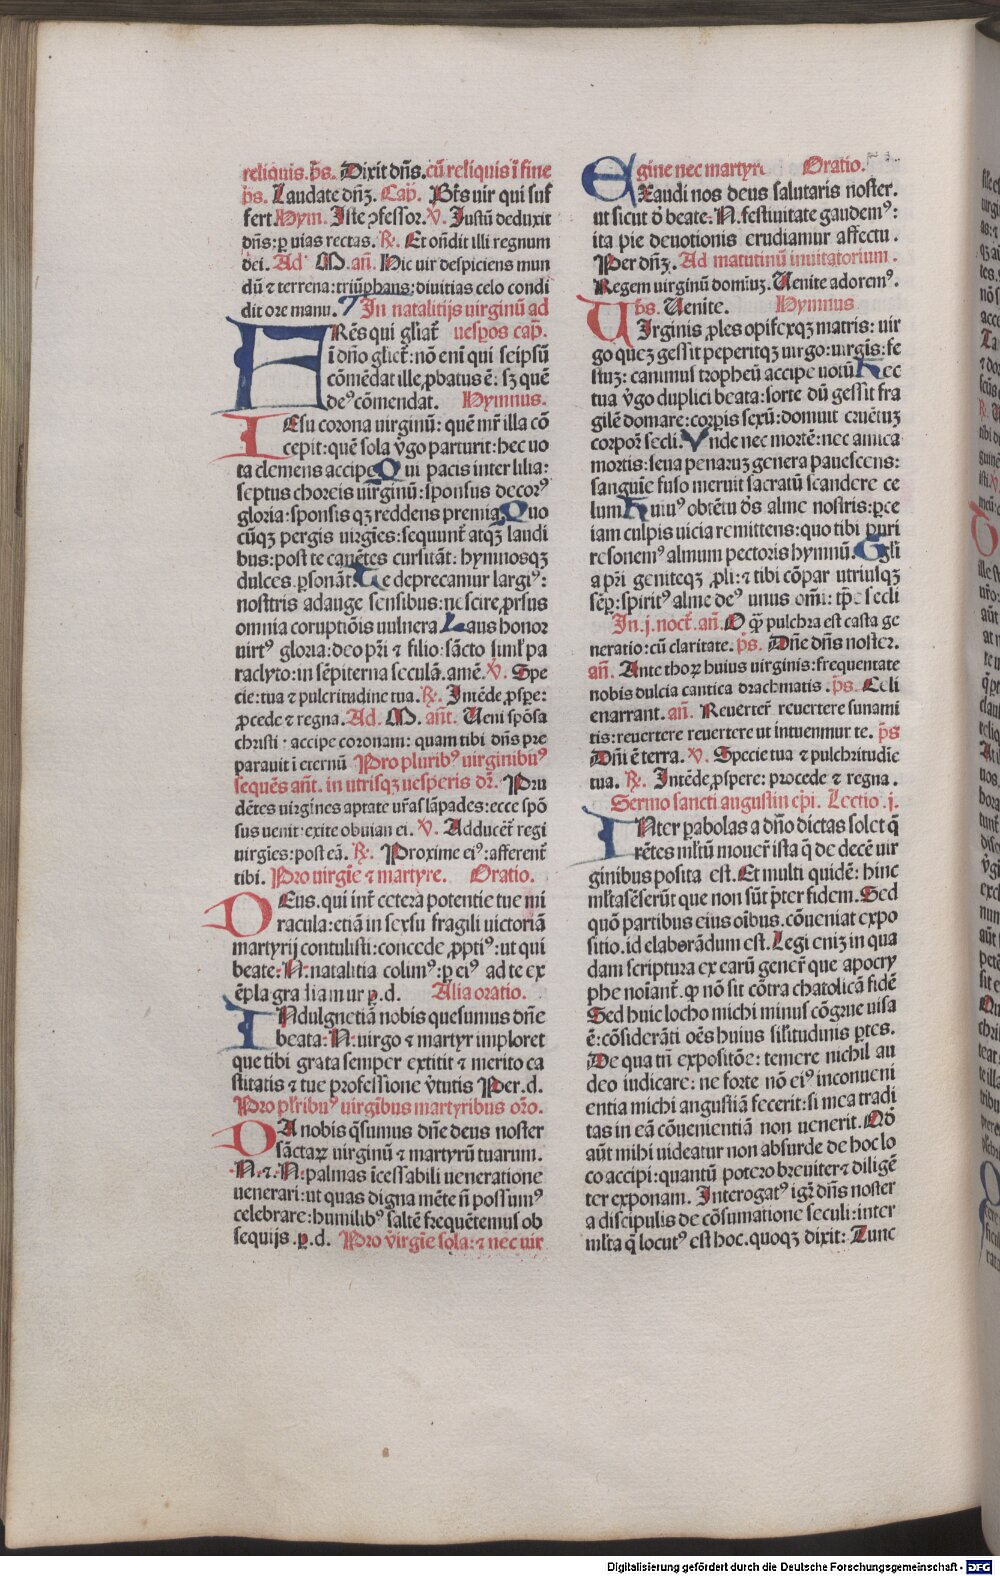 reliquis. p̄s. Dixit dn̄s. cū reliquis ī fine
p̄s. Laudate dn̄ꝫ. Cap̄. Bt̄s vir qui suf
fert Hym. Iste ꝯfessor. ℣. Iustū deduxit
dn̄s: ꝑ uias rectas. ℟. Et on̄dit illi regnum
dei. Ad M. an̄. Hic uir despiciens mun
dū ⁊ terrena: triūphans: diuitias celo condi
dit ore manu. In natalitijs uirginū ad
FRēs qui gliat̄ uesꝑos cap̄.
ī dn̄o gliet̄: nō eni qui seipsū
cōmēdat ille ꝓbatus ē: sꝫ quē
deꝰ cōmendat. Hymnus.
IEsu corona uirginū: quē mr̄ illa cō
cepit: quē sola v̄go parturit: hec uo
ta clemens accipe Qui pacis inter lilia:
septus choreis uirginū: sponsus decorꝰ
gloria: sponsis qꝫ reddens premia. Quo
cūqꝫ pergis uirgīes: sequunt̄ atqꝫ laudi
bus: post te canētes cursitāt: hymnosqꝫ
dulces ꝑsonāt. Te deprecamur largiꝰ:
nosttris adauge sensibus: nescire ꝓrsus
omnia coruptiōis uulnera Laus honor
uirtꝰ gloria: deo pr̄i ⁊ filio: sācto siml̄ pa
raclyto: in sēpiterna seculā. amē. ℣. Spe
cie: tua ⁊ pulcritudine tua. ℟. Intēde ꝓspe:
ꝓcede ⁊ regna. Ad. M. an̄t. Ueni spōsa
christi: accipe coronam: quam tibi dn̄s pre
parauit ī eternū Pro pluribꝰ uirginibuꝰ
sequēs an̄t. in utrisqꝫ uesperis dr̄. Pru
dētes uirgines aptate ur̄as lāpades: ecce spō
sus uenit: exite obuian ei. ℣. Adducēt̄ regi
uirgīes: post eā. ℟. Proxime eiꝰ: afferent̄
tibi. Pro uirgīe ⁊ martyre. Oratio.
DEus. qui int̄ cetera potentie tue mi
racula: etiā in sexsu fragili uictoriā
martyrij contulisti: concede ꝓptiꝰ: ut qui
beate: N: natalitia colimꝰ: ꝑ eiꝰ ad te ex
ēpla gradiamur ꝑ. d. Alia oratio.
INdulgnetiā nobis quesumus dn̄e
beata: N: uirgo ⁊ martyr imploret
que tibi grata semper extitit ⁊ merito ca
stitatis ⁊ tue professione v̄tutis Per. d.
Pro plr̄ibuꝰ uirgībus martyribus or̄o.
DA nobis q̄sumus dn̄e deus noster
sāctaꝝ uirginū ⁊ martyrū tuarum.
N. ⁊. N. palmas īcessābili ueneratione
uenerari: ut quas digna mēte n̄ possumꝰ
celebrare: humilibꝰ saltē frequētemus ob
sequijs. ꝑ. d. Pro v̄irgīe sola: ⁊ nec uir
gine nec martyre Oratio.
EXaudi nos deus salutaris noster.
ut sicut d̄ beate: N. festiuitate gaudemꝰ:
ita pie deuotionis erudiamur affectu.
Per dn̄ꝫ. Ad matutinū inuitatorium.
Regem uirginū domiuꝫ. Uenite adoremꝰ.
p̄s. Uenite. Hymnus
UIrginis ꝓles opifexqꝫ matris: uir
go queꝫ gessit peperitqꝫ uirgo: uirgīs: fe
stuꝫ: canimus tropheū accipe uotū Hec
tua v̄go duplici beata: sorte dū gessit fra
gilē domare: corpīs sexū: domuit cruētuꝫ
corpoꝝ secli. Unde nec mortē: nec amica
mortis: seua penaruꝫ genera pauescens:
sanguīe fuso meruit sacratū scandere ce
lum Huiuꝰ obtētu d̄s alme nostris: ꝑce
iam culpis uicia remittens: quo tibi puri
resonemꝰ almum pectoris hymnū. Gl̄i
a pr̄i geniteqꝫ ꝓli: ⁊ tibi cōpar utriusqꝫ
sēꝑ: spiritꝰ alme deꝰ unus omī: tꝑe secli
In. j. noct̄. an̄. O qꝫ pulchra est casta ge
neratio: cū claritate. p̄s. Dn̄e dn̄s noster.
an̄. Ante thoꝝ huius uirginis: frequentate
nobis dulcia cantica drachmatis. p̄s. Celi
enarrant. an̄. Reuerter̄ reuertere sunami
tis: reuertere reuertere ut intuemur te. p̄s
Dn̄i ē terra. ℣. Specie tua ⁊ pulchritudīe
tua. ℟. Intēde, ꝓspere: procede ⁊ regna.
Sermo sancti augustin ep̄i. Lectio. j.
INter ꝑabolas a dn̄o dictas solet q̄
rētes ml̄tū mouer̄ ista q̄ de decē uir
ginibus posita est. Et multi quidē: hinc
ml̄ta sēserūt que non sūt p̄ter fidem. Sed
quō partibus eius oībus. cōueniat expo
sitio. id elaborādum est. Legi eniꝫ in qua
dam scriptura ex earū gener̄ que apocry
phe noīant̄. qꝫ nō sit cōtra chatolicā fidē
Sed huic locho michi minus cōgrue uisa
ē: cōsiderāti oēs huius sil̄itudinis ꝑtes.
De qua tn̄ expositōe: temere nichil au
deo iudicare: ne forte nō eiꝰ inconueni
entia michi angustiā fecerit: si mea tradi
tas in eā cōuenientiā non uenerit. Qd̄
aūt mihi uideatur non absurde de hoc lo
co accipi: quantū potero breuiter ⁊ diligē
ter exponam. Interogatꝰ igr̄ dn̄s noster
a discipulis de cōsumatione seculi: inter
ml̄ta q̄ locutꝰ est hoc. quoqꝫ dixit: Tunc
Digitalisierung gefördert durch die Deutsche Forschungsgemeinschaft - DFG